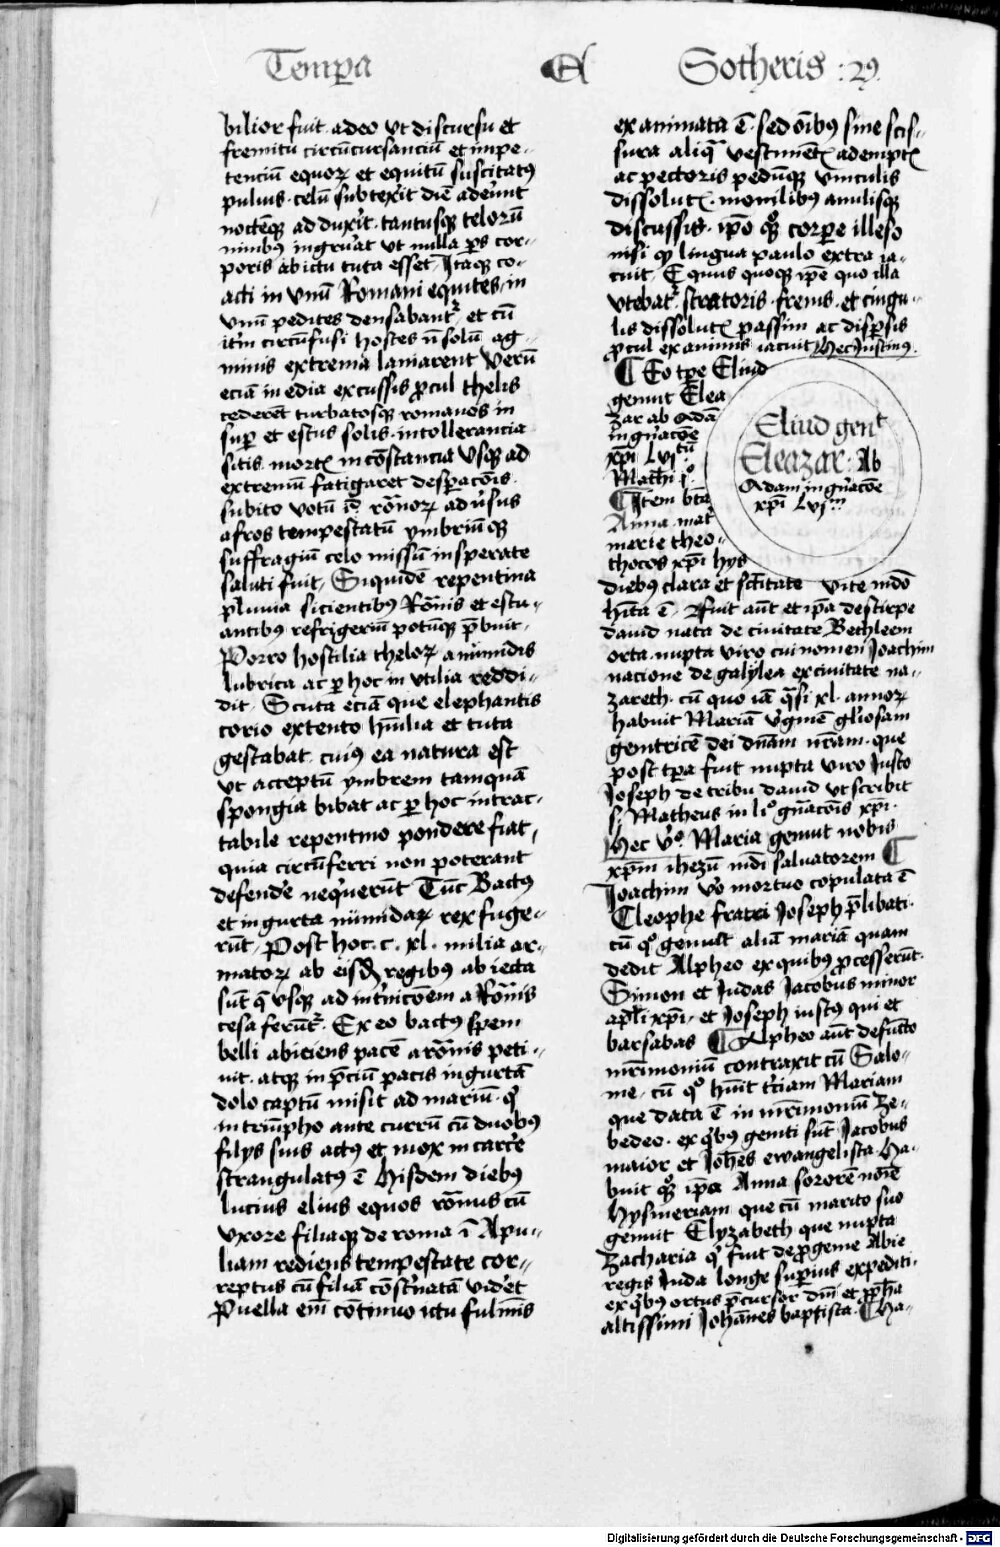 Temp̲a Et Sotheris : 29.
bilior fuit. adeo vt discursu et
fremitu circūcursanciū et impe-
tenciū equoꝝ et equitū suscitatꝰ
puluis. celū subtexit diē ademit
noctēqꝫ adduxit. tantusqꝫ telorū
nimbꝰ ingruat vt nulla ps cor-
poris ab ictu tuta esset, Itaqꝫ co-
acti in vnū Romani equites, in
vnū pedites densabant᷑, et cū
itm̄ circūfusi hostes n̄ solū ag-
minis extrema laniarent verū
eciā media excussis ꝓcul thelis
cederēt turbatosqꝫ romanos in
sup̲ et estus solis. intollerancia
sitis. mort inconstancia vsqꝫ ad
extremū fatigaret desperacōis.
subito votū ī. rōnoꝝ aduersus
afros tempestatū ymbriūqꝫ
suffragiū celo missū insperate
saluti fuit, Siquidē repentina
pluuia sicientibꝰ Rōnis et estu-
antibꝰ refrigeriū potūqꝫ p̄buit,
Porro hostilia theloꝝ a numidis
lubrica ac p̲ hoc in vtilia reddi-
dit, Scuta eciā que elephantis
corio extento hūilia et tuta
gestabat. cuiꝰ ea natura est
vt acceptū ymbrem tamquā
spongia bibat ac p̲ hoc intrac-
tabile repentino pondere fiat,
quia circūferri non poterant
defendē nequerūt Tūc Bactꝰ
et ingurta numidaꝝ rex fuge-
rūt, Post hoc. c. xl. milia ar-
matoꝝ ab eisdē regibꝰ abiecta
sūt q̄ vsqꝫ ad intnicōem a Rōnis
cesa ferūt᷑. Ex eo bactꝰ spem
belli abiciens pacē a rōnis peti-
uit. atqꝫ in p̄ciū pacis ingurtā
dolo captū misit ad mariū. qꝰ
in triūpho ante currū cū duobꝰ
filys suis actꝰ et mox in carcē
strangulatꝰ ē Hisdem diebꝰ
lucius elius equos rōnus cū
vxore filiaqꝫ de roma ī Apu-
liam rediens tempestate cor-
reptus cū filiā cōstnatā videt
Puella em̄ cōtinuo ictu fulmīs
exanimata ē. sed oībꝰ sine scis-
sura aliq̄ vestiment ademptꝭ
ac pectoris pedūqꝫ vinculis
dissolutꝭ. monilibꝰ anulisqꝫ
discussis. ip̄o qꝫ corpore illeso
nisi qꝫ lingua paulo extra ia-
cuit, Equus quoqꝫ ip̄e quo illa
vtebat᷑. stratoris. frenis. et cingu-
lis dissolutꝭ passim ac disp̲sis
ꝓcul exanimis iacuit, Hec Iustinus.
¶ Eo tp̄e Eliud
genuit Elea
zar ab Adā
ingnacōe
xp̄i Lvjtū
Math̄i jͦ.
¶ Item bt̄a
Anna mat̄
merie theo-
thocos xp̄i hys
Eliud gent
Eleazar: Ab
Adam ingnacōe
xp̄i Lvjm
diebus clara et sctītate vite mdō
hīta ē. Fuit aūt et ip̄a de stirpe
dauid nata de ciuitate Bethleem
orta. nupta viro cui nomen Ioachim
nacione de galylea ex ciuitate na-
zareth. cū quo iā q̄si xl. annoꝝ
habuit Mariā virginē gliosam
genitricē dei dnām nrām. que
post tp̄a fuit nupta viro iusto
Ioseph de tribu dauid vt scribit
s. Matheus in li° gnacōis xp̄i.
Hec v° Maria genuit nobis
xp̄m ihezū mdi saluatorem ¶
Ioachim v° mortuo copulata ē
Cleophe fratri Ioseph p̄libati.
cū q° genuit aliā mariā quam
dedit Alpheo ex quibꝰ ꝓcesserūt.
Simon et Iudas Iacobus minor
apl̄i xp̄i, et Ioseph iustus qui et
barsabas ¶ Alpheo aūt defuncto
mr̄imoniū contraxit cū Salo-
me, cū q° hūit terciam Mariam
que data ē in mr̄imoniū Ze-
bedeo. ex q̄bꝰ geniti sūt Iacobus
maior et Ioh̄es ewangelista Ha-
buit qꝫ ip̄a Anna sororē noīe
Hysmeriam que cū marito suo
genuit Elyzabeth que nupta
Zacharia q̄ fuit de ꝓgenie Abie
regis Iuda longe superius expediti.
ex q̄bꝰ ortus p̄cursor dnī et ꝓph̄a
altissimi Iohānes baptista. ¶ Ha-
Digitalisierung gefördert durch die Deutsche Forschungsgemeinschaft - DFG